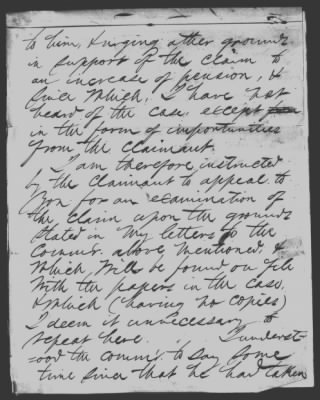 to him, & urging other grounds
in support of the claim to
an increase of pension, &
since which, I have not
heard of the case, except
in the form of importunities
from the Claimant.
I am therefore instructed
by the Claimant to appeal to
you for an examination of
the claim upon the grounds
stated in my letters to the
Commr. above mentioned, &
which, will be found on file
with the papers in the case.
& which (having no copies)
I deem it unnecessary to
repeat here. I underst-
ood the Commr. to say some
time since that he had taken